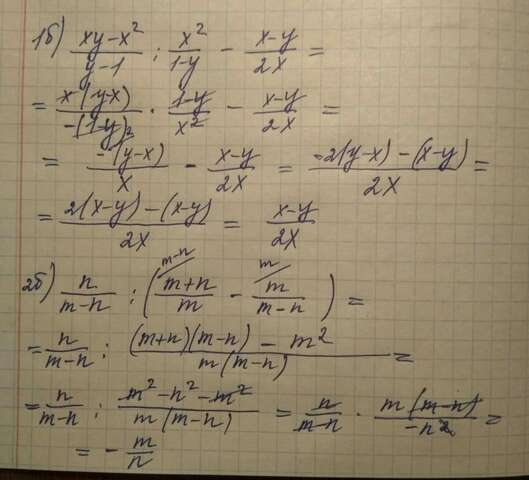 1б) (xy-x²)/(y-1) : x²/(1-y) - (x-y)/2x =
= x(y-x)/-(1-y) · (1-y)/x² - (x-y)/2x =
= -(y-x)/x - (x-y)/2x = (-2(y-x)-(x-y))/2x =
= (2(x-y)-(x-y))/2x = (x-y)/2x
2б) n/(m-n) : ((m+n)/m ⟋m-n - m/(m-n) ⟋m) =
= n/(m-n) : ((m+n)(m-n)-m²)/m(m-n) =
= n/(m-n) : (m²-n²-m²)/m(m-n) = n/(m-n) · m(m-n)/-n² =
= -m/n